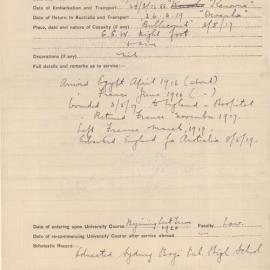 Date of Embarkation and Transport
Date of Return to Australia and Transport 26.6.19
Place, date and nature of Casualty (if any) "Bullecourt" 3/5/17
G.S.W. Right foot
Decorations (if any)
nil
Full details and remarks as to service:
Arrived Egypt April 1916 (about)
" France June 1916 ( - )
Wounded 3/5/17 to England - Hospital
Returned France November 1917.
Left France March 1919.
Embarked England for Australia 8/5/19.
Date of entering upon University Course Faculty Law.
Date of re-commencing University Course after service abroad 1920
Scholastic Record:
Educated Sydney Boys' High School